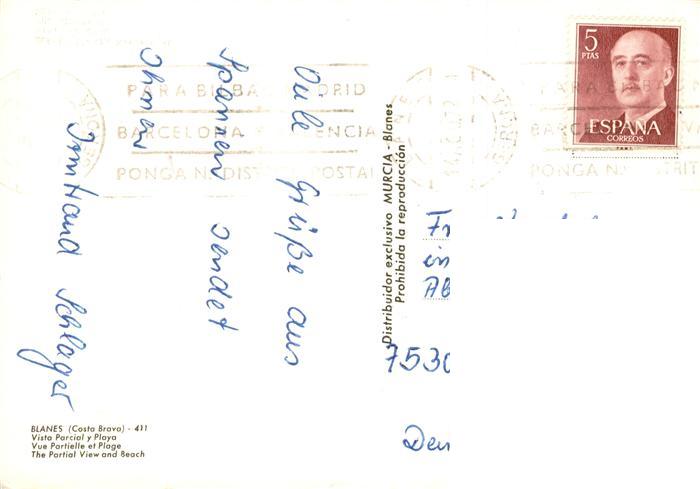 5
PTAS
ESPAÑA
CORREOS
PARA BILBAO MADRID
BARCELONA VALENCIA
PONGA N. DIST POSTAL
PARA B
BARC
PONGA N. TRIT
Viele Grüße aus
Spanien sendet
Ihnen
Irmtraud Schlager
Distribuidor exclusivo MURCIA - Blanes
Prohibida la reproducción
Fr
in
AB
7530
Den
BLANES (Costa Brava) - 411
Vista Parcial y Playa
Vue Partielle et Plage
The Partial View and Beach